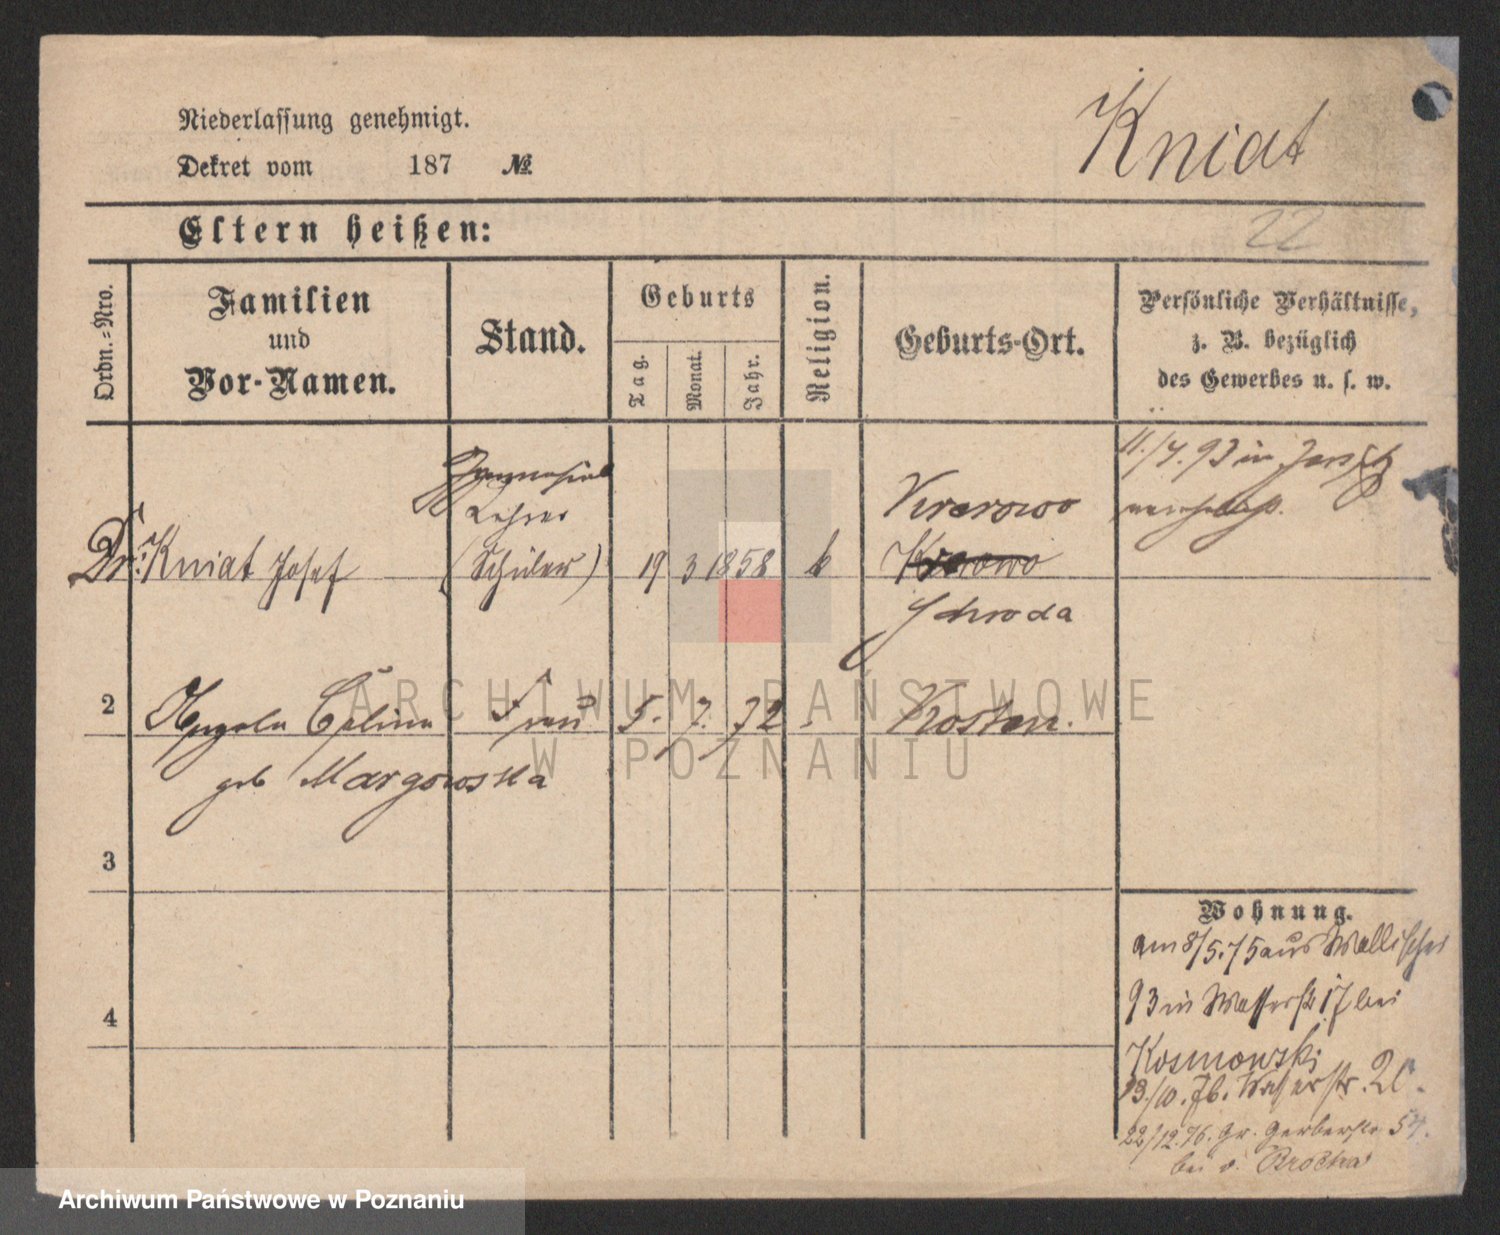 Niederlassung genehmigt.
Kniat
Dekret vom 187 №
22
Eltern heißen:
Ordn.-Nro.
Familien
und
Vor-Namen.
Stand.
Geburts
Tag.
Monat.
Jahr.
Religion.
Geburts-Ort.
Persönliche Verhältnisse,
z. B. bezüglich
des Gewerbes u. s. w.
Gymnasial
Lehrer
Dr. Kniat Josef (Schüler) 19 3 1858 k
Krerowo
Schroda
11/7. 93 in
2 Celina Frau 5. 7. 72 Kosten.
geb Margowska
3
4
Wohnung.
am 8/5. 75 aus Wallischei
93 in Wasserstr 17 bei
Kosmowski
23/10. 76. Wasserstr.
22/12. 76. Gr. Gerberstr 54.
bei v.
ARCHIWUM PAŃSTWOWE
W POZNANIU
Archiwum Państwowe w Poznaniu